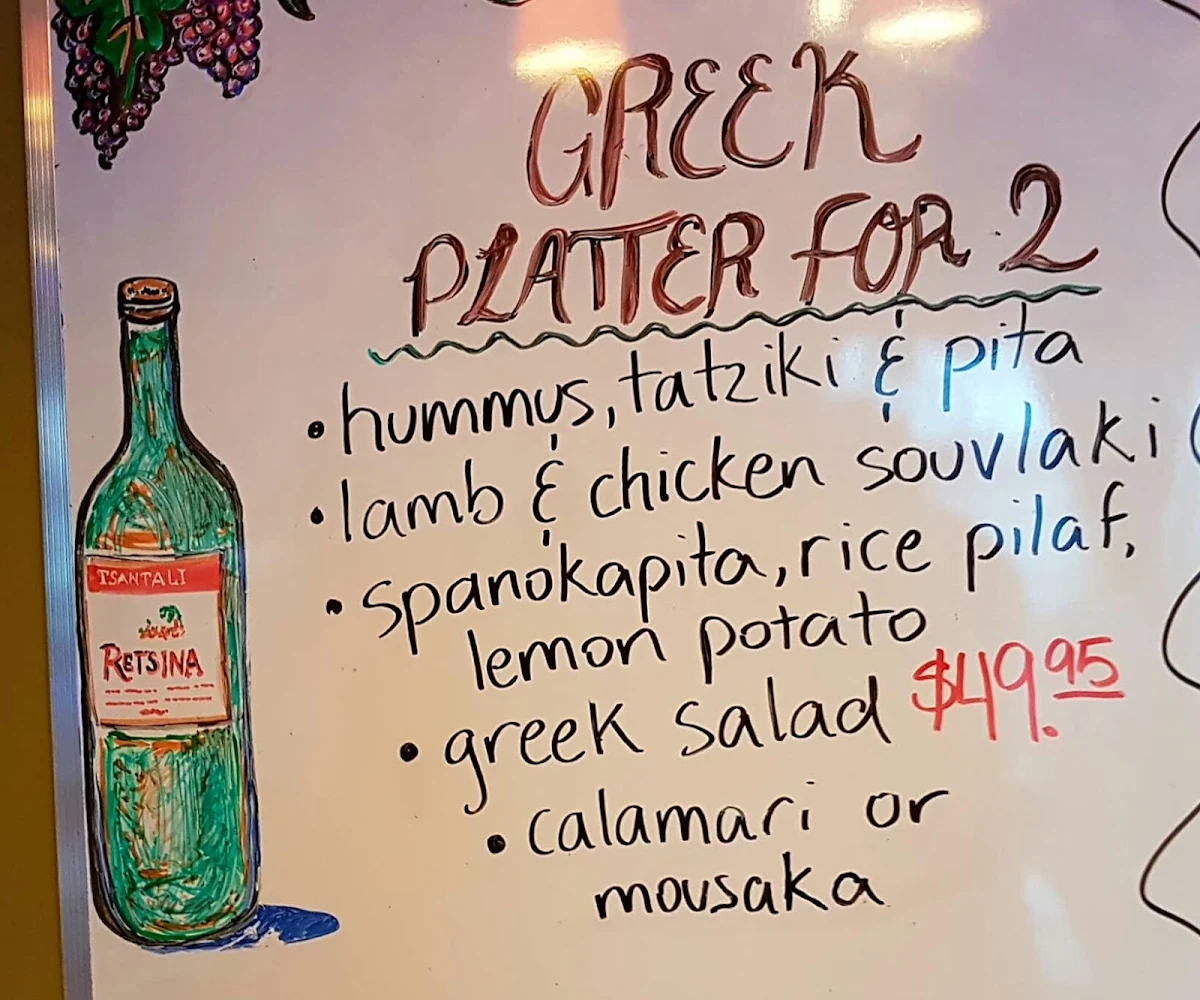 GREEK
PLATTER FOR 2
• hummus, tatziki & pita
• lamb & chicken souvlaki
• spanokapita, rice pilaf,
lemon potato
• greek salad $49.95
• calamari or
mousaka
TSANTALI
RETSINA